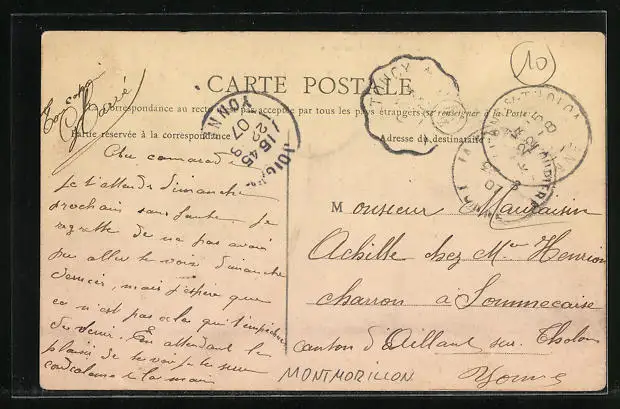 10
CARTE POSTALE
Ton copain
Barré
La correspondance au recto n'est pas acceptée par tous les pays étrangers (se renseigner à la Poste)
Partie réservée à la correspondance
Adresse du destinataire
JOIGNY YONNE
15 45
22 - 3
07
Cher camarade
Je t'attends dimanche
prochain sans faute. Je
regrette de ne pas avoir
pu aller te voir dimanche
dernier, mais j'espère que
ce n'est pas cela qui t'empêchera
de venir. En attendant le
plaisir de te voir je te serre
cordialement la main
Monsieur Mauraisin
Achille chez Mr Henrion
charron à Sommecaise
canton d'Aillant sur Tholon
Yonne
MONTMORILLON